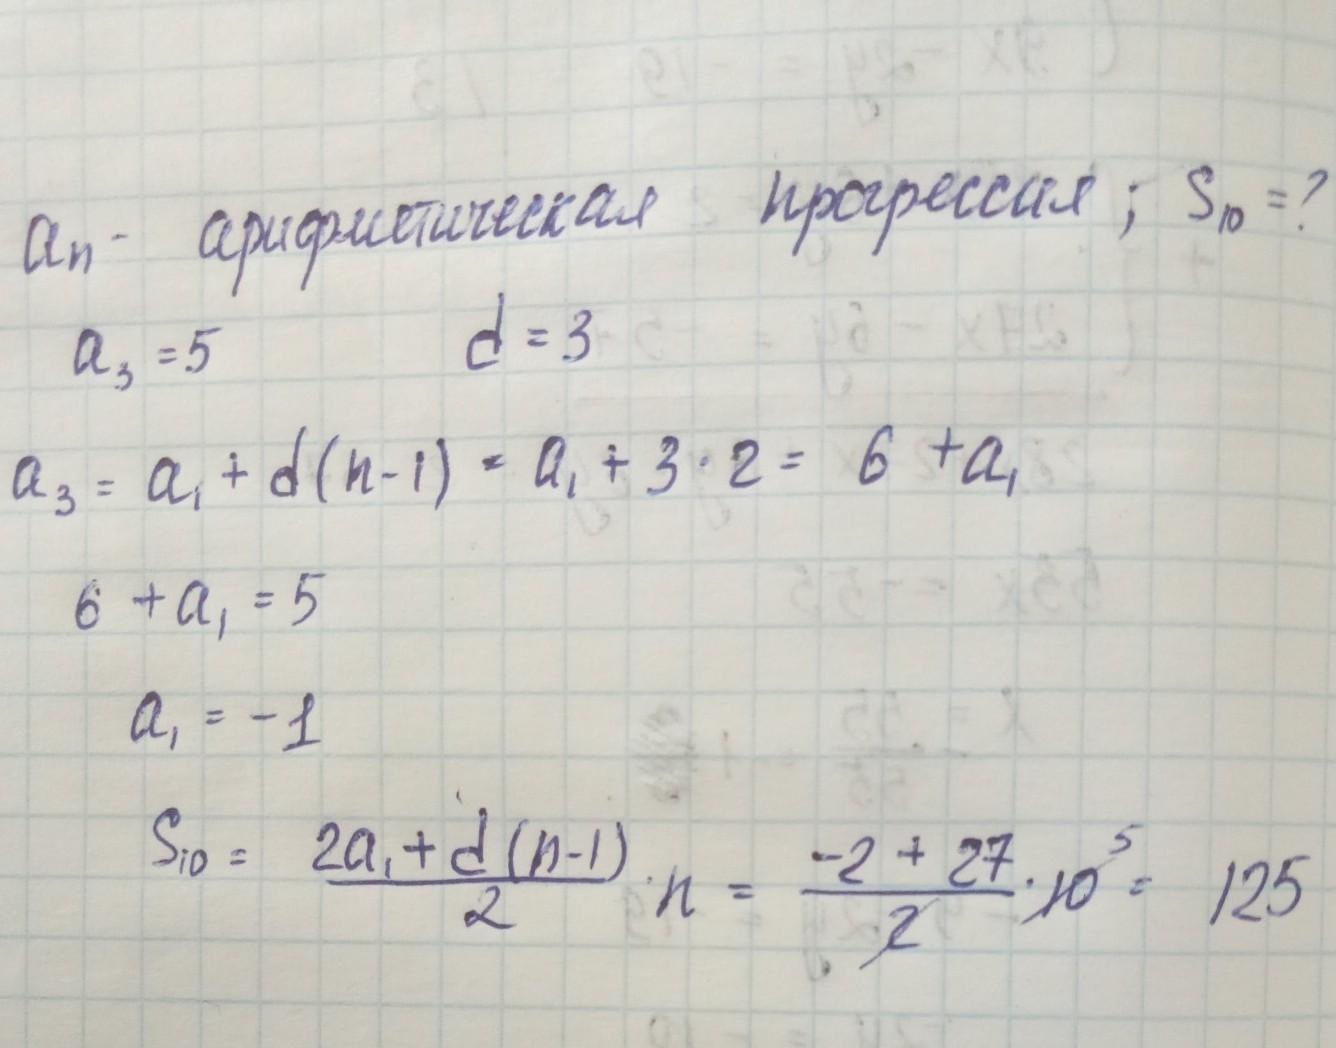 aₙ - арифметическая прогрессия; S₁₀ = ?
a₃ = 5 d = 3
a₃ = a₁ + d(n-1) = a₁ + 3 · 2 = 6 + a₁
6 + a₁ = 5
a₁ = -1
S₁₀ = (2a₁ + d(n-1))/2 · n = (-2 + 27)/2 · 10⁵ = 125